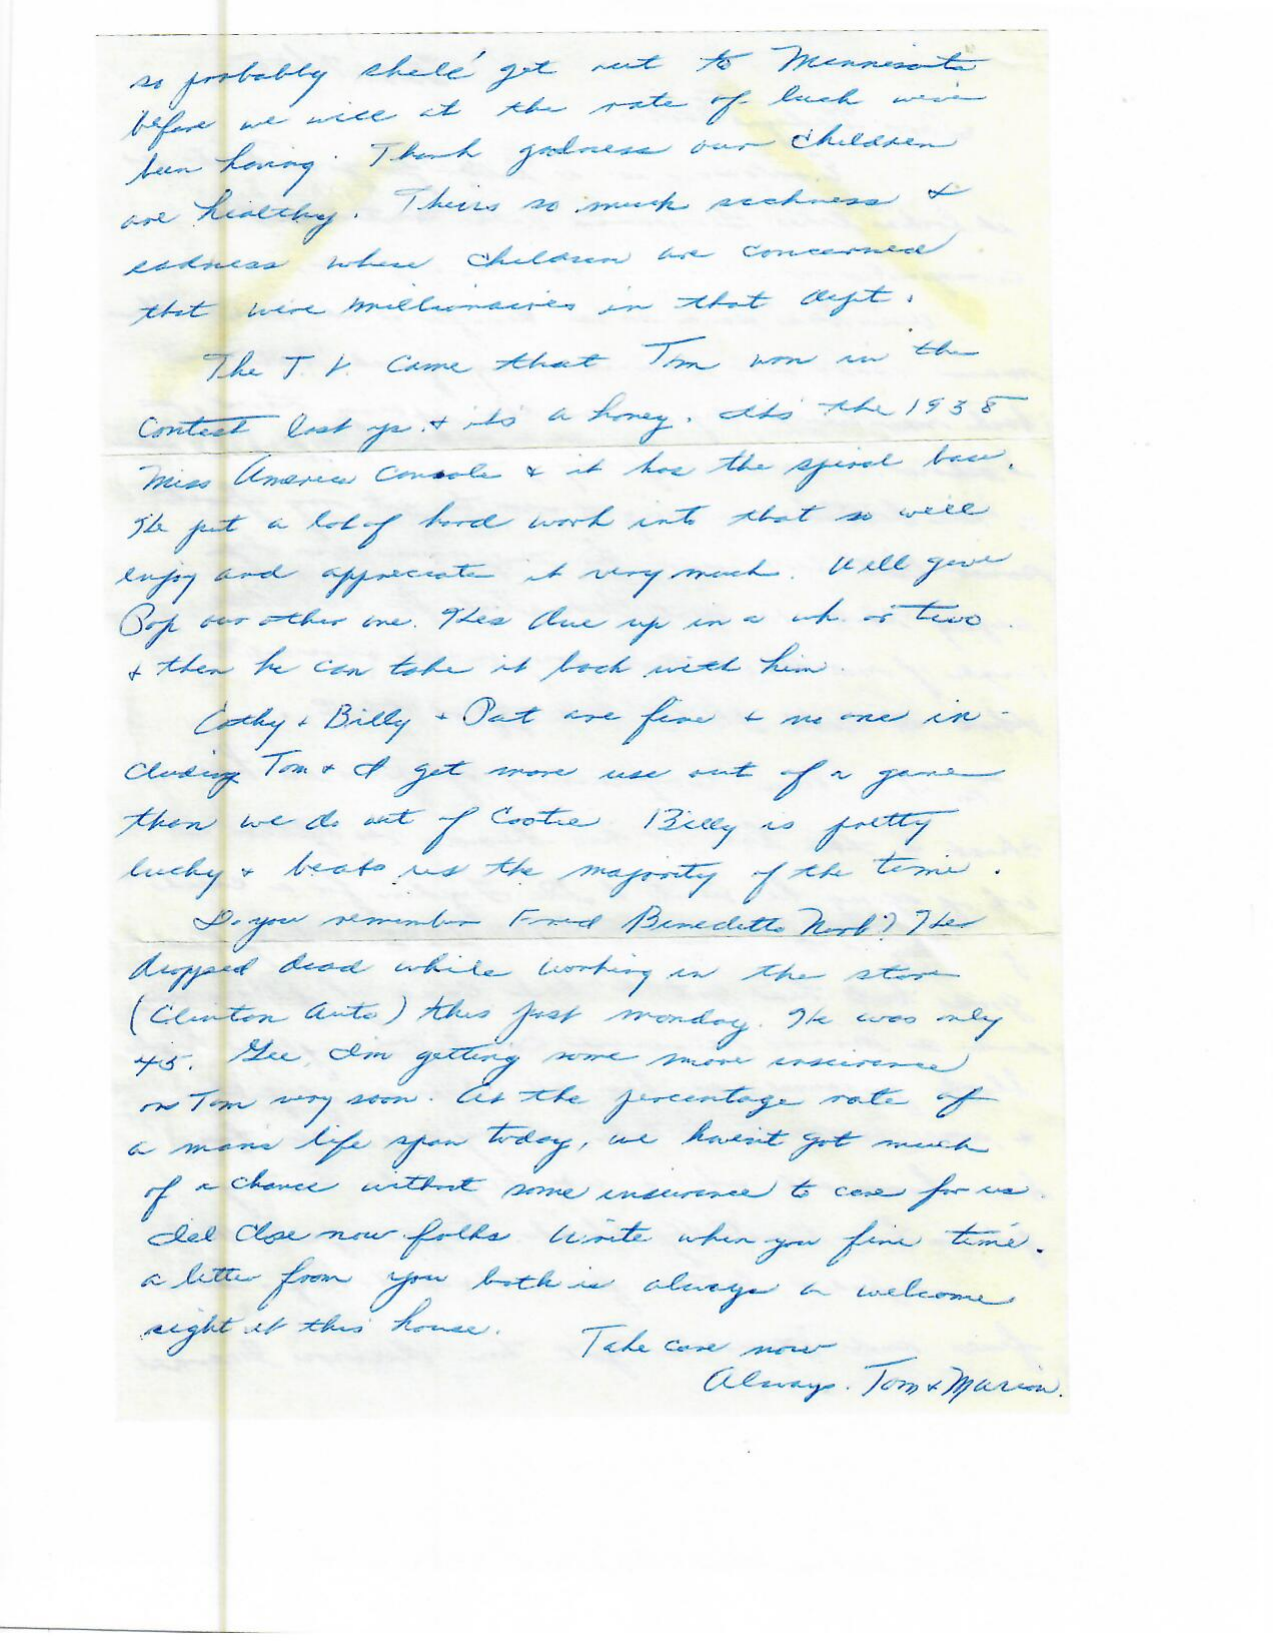 so probably she'll get out to Minnesota
before we will at the rate of luck we've
been having. Thank godness our children
are healthy. Theirs so much sickness &
sadness where children are concerned
that we're millionaires in that dept.
The T.V. came that Tom won in the
contest last yr. & it's a honey. It's the 1958
Miss America Console & it has the spiral base.
He put a lot of hard work into that so we'll
enjoy and appreciate it very much. We'll give
Pop our other one. He's due up in a wk. or two
& then he can take it back with him.
Cathy & Billy & Pat are fine & no one in-
cluding Tom & I get more use out of a game
than we do out of Cootie Billy is pretty
lucky & beats us the majority of the time.
Do you remember Fred Benedetto Norb? He
dropped dead while working in the store
(Clinton Auto) this past monday. He was only
45. Gee, I'm getting some more insurance
on Tom very soon. At the percentage rate of
a man's life span today, we haven't got much
of a chance without some insurance to care for us.
I'll close now folks. Write when you fine time.
a letter from you both is always a welcome
sight at this house.
Take care now
Always. Tom & Marion.